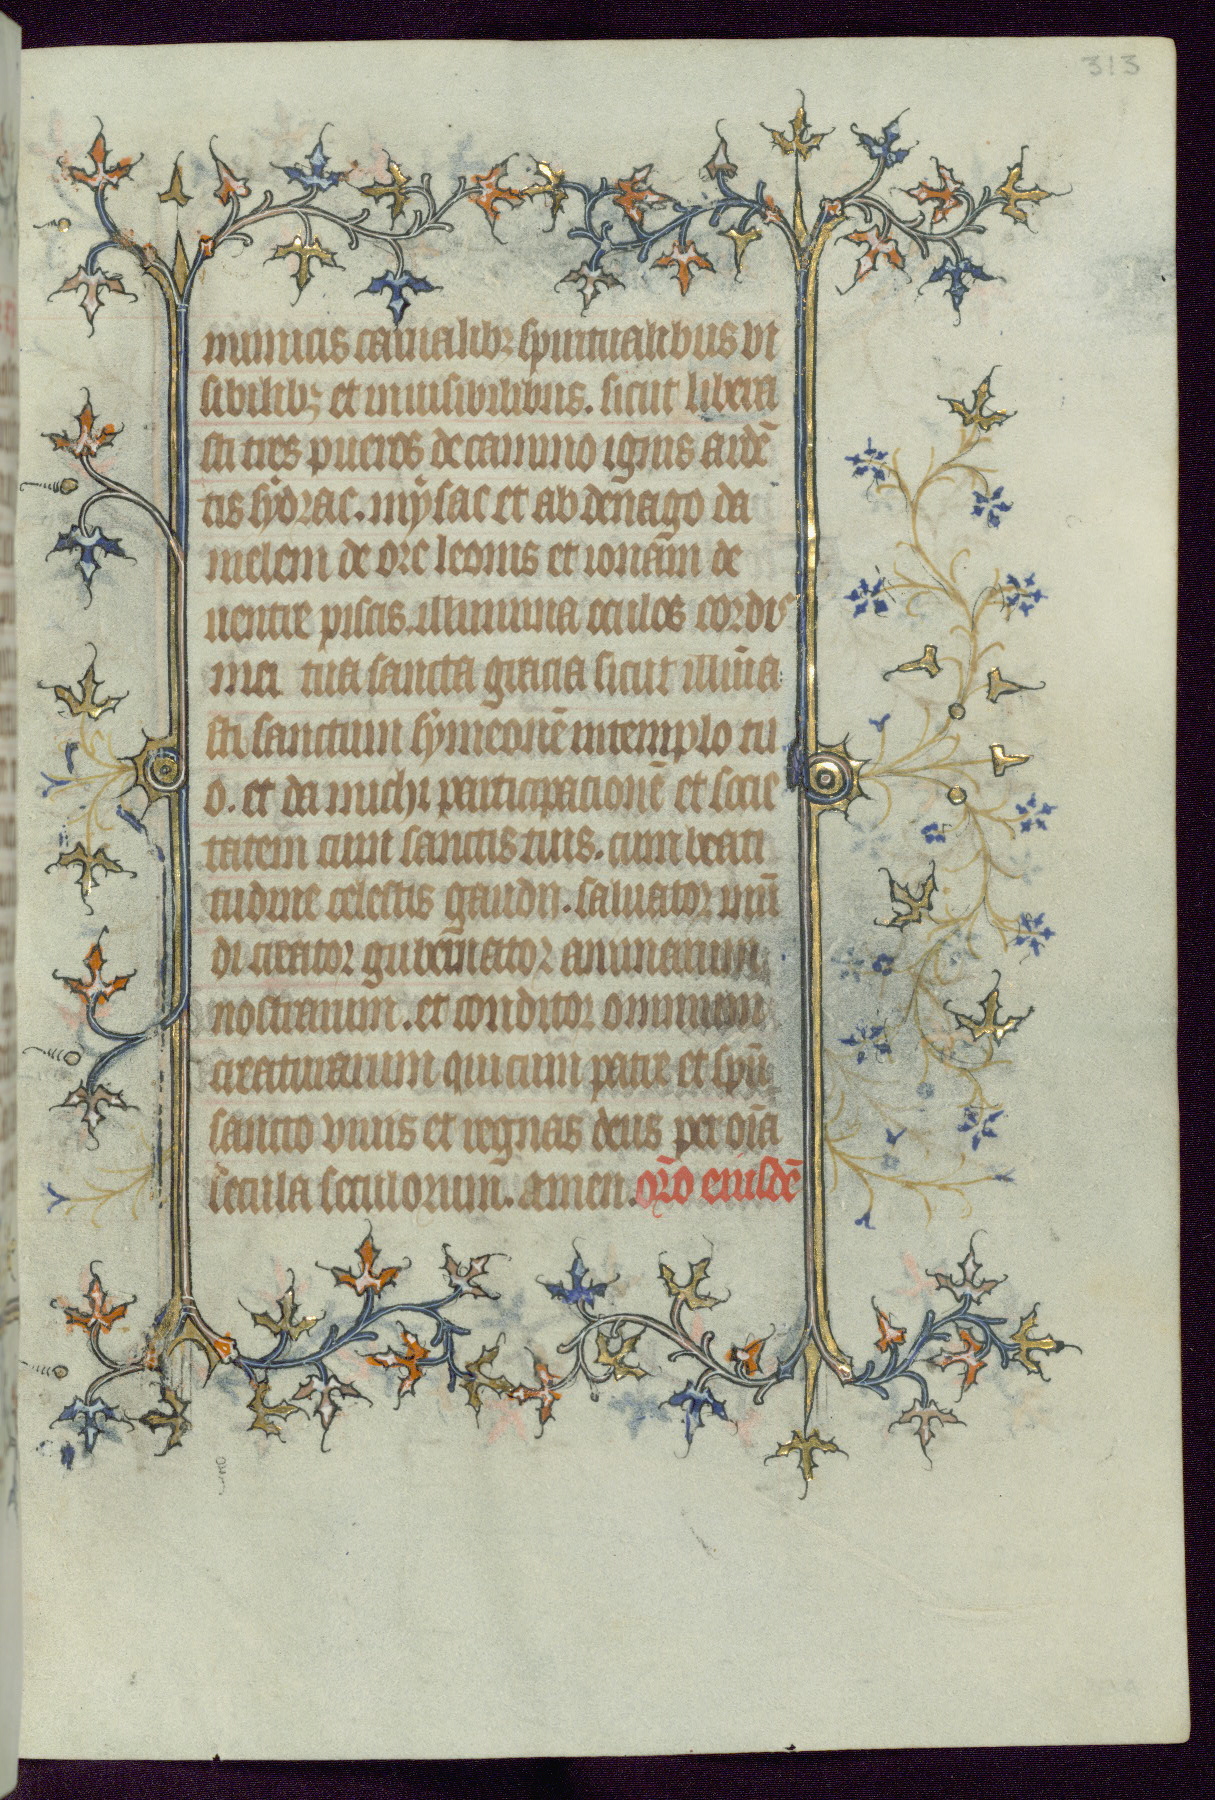 313
mimicis carnalibꝫ spiritualibus vi
sibilibꝫ et inuisibilibus. sicut libera
sti tres pueros de camino ignis ardē
tis sydrac. mysac et abdenago da
nielem de ore leonis et ionam de
uentre piscis. illumina oculos cordis
mei tua sancta gracia sicut illūīa
sti sanctum symeonē in templo tu
o. et da michi participacionē et socie
tatem cum sanctis tuis. cum beati
tudine celestis gaudii. saluator mū
di creator gubernator animarum
nostrarum. et conditor omnium
creaturarum qui cum patre et spū
sancto viuis et regnas deus per oīa
secula seculorum. amen. orō eiusdē